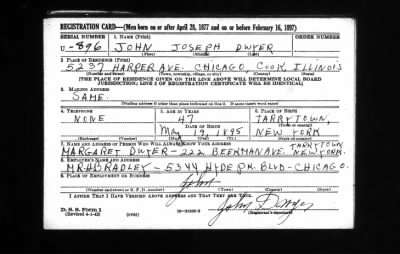 REGISTRATION CARD—(Men born on or after April 28, 1877 and on or before February 16, 1897)
SERIAL NUMBER 1. NAME (Print) ORDER NUMBER
U-896 JOHN JOSEPH DWYER
(First) (Middle) (Last)
2. PLACE OF RESIDENCE (Print)
5237 HARPER AVE. CHICAGO, COOK, ILLINOIS
(Number and street) (Town, township, village, or city) (County) (State)
[THE PLACE OF RESIDENCE GIVEN ON THE LINE ABOVE WILL DETERMINE LOCAL BOARD
JURISDICTION; LINE 2 OF REGISTRATION CERTIFICATE WILL BE IDENTICAL]
3. MAILING ADDRESS
SAME
[Mailing address if other than place indicated on line 2. If same insert word same]
4. TELEPHONE 5. AGE IN YEARS 6. PLACE OF BIRTH
NONE 47 TARRYTOWN,
DATE OF BIRTH (Town or county)
MAY 19, 1895 NEW YORK
(Exchange) (Number) (Mo.) (Day) (Yr.) (State or country)
7. NAME AND ADDRESS OF PERSON WHO WILL ALWAYS KNOW YOUR ADDRESS TARRYTOWN
MARGARET DWYER-222 BEEKMAN AVE. NEW YORK.
8. EMPLOYER'S NAME AND ADDRESS
MR. H BRADLEY-5344 HYDE PK. BLVD-CHICAGO.
9. PLACE OF EMPLOYMENT OR BUSINESS
John
(Number and street or R. F. D. number) (Town) (County) (State)
I AFFIRM THAT I HAVE VERIFIED ABOVE ANSWERS AND THAT THEY ARE TRUE.
D. S. S. Form 1 John Dwyer
(Revised 4-1-42) (over) (Registrant's signature)